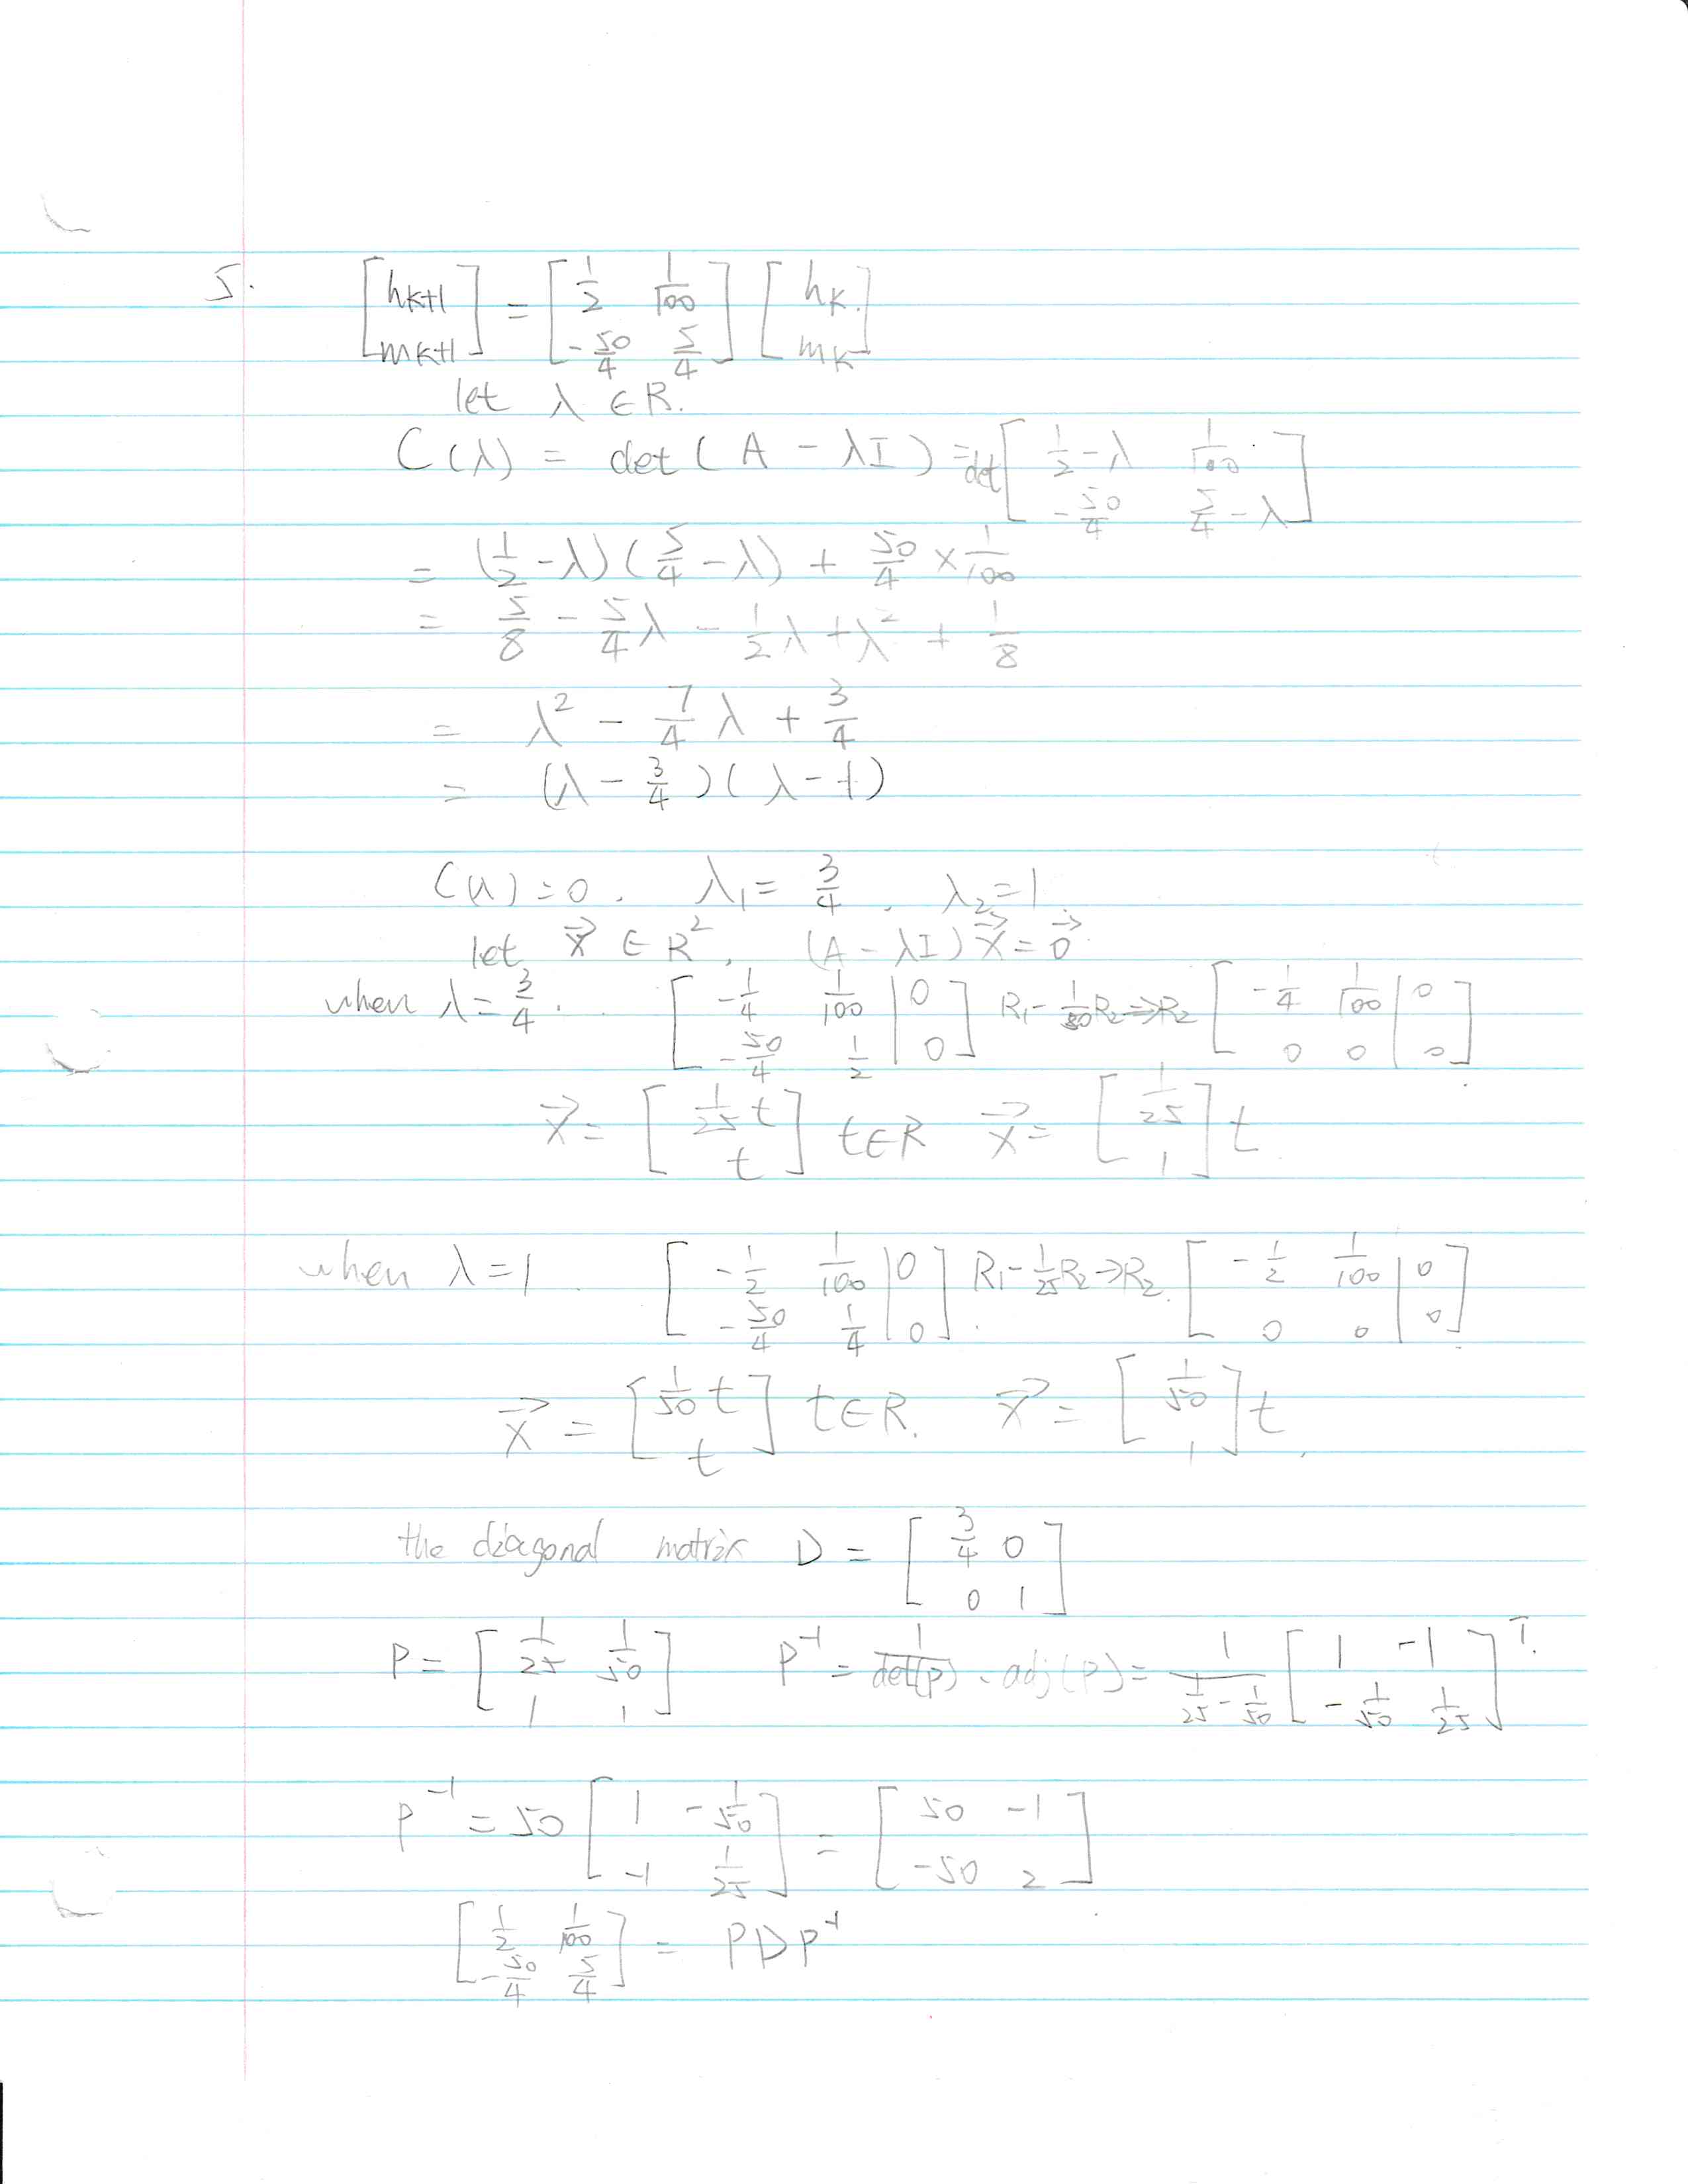 5. [h_{k+1} ; m_{k+1}] = [1/2 1/100 ; -50/4 5/4] [h_k ; m_k]
let λ ∈ R.
C(λ) = det(A - λI) = det [1/2-λ 1/100 ; -50/4 5/4-λ]
= (1/2-λ)(5/4-λ) + 50/4 × 1/100
= 5/8 - 5/4λ - 1/2λ + λ² + 1/8
= λ² - 7/4 λ + 3/4
= (λ - 3/4)(λ - 1)
C(λ)=0. λ₁ = 3/4, λ₂=1
let x⃗ ∈ R², (A - λI)x⃗ = 0⃗
when λ = 3/4. [-1/4 1/100 | 0 ; -50/4 1/2 | 0] R₁ - 1/50 R₂ ⇒ R₂ [-1/4 1/100 | 0 ; 0 0 | 0]
x⃗ = [1/25 t ; t] t∈R x⃗ = [1/25 ; 1] t
when λ=1. [-1/2 1/100 | 0 ; -50/4 1/4 | 0] R₁ - 1/25 R₂ → R₂. [-1/2 1/100 | 0 ; 0 0 | 0]
x⃗ = [1/50 t ; t] t∈R. x⃗ = [1/50 ; 1] t
the diagonal matrix D = [3/4 0 ; 0 1]
P = [1/25 1/50 ; 1 1] P⁻¹ = 1/det(P) · adj(P) = 1/(1/25 - 1/50) [1 -1 ; -1/50 1/25]ᵀ.
P⁻¹ = 50 [1 -1/50 ; -1 1/25] = [50 -1 ; -50 2]
[1/2 1/100 ; -50/4 5/4] = PDP⁻¹